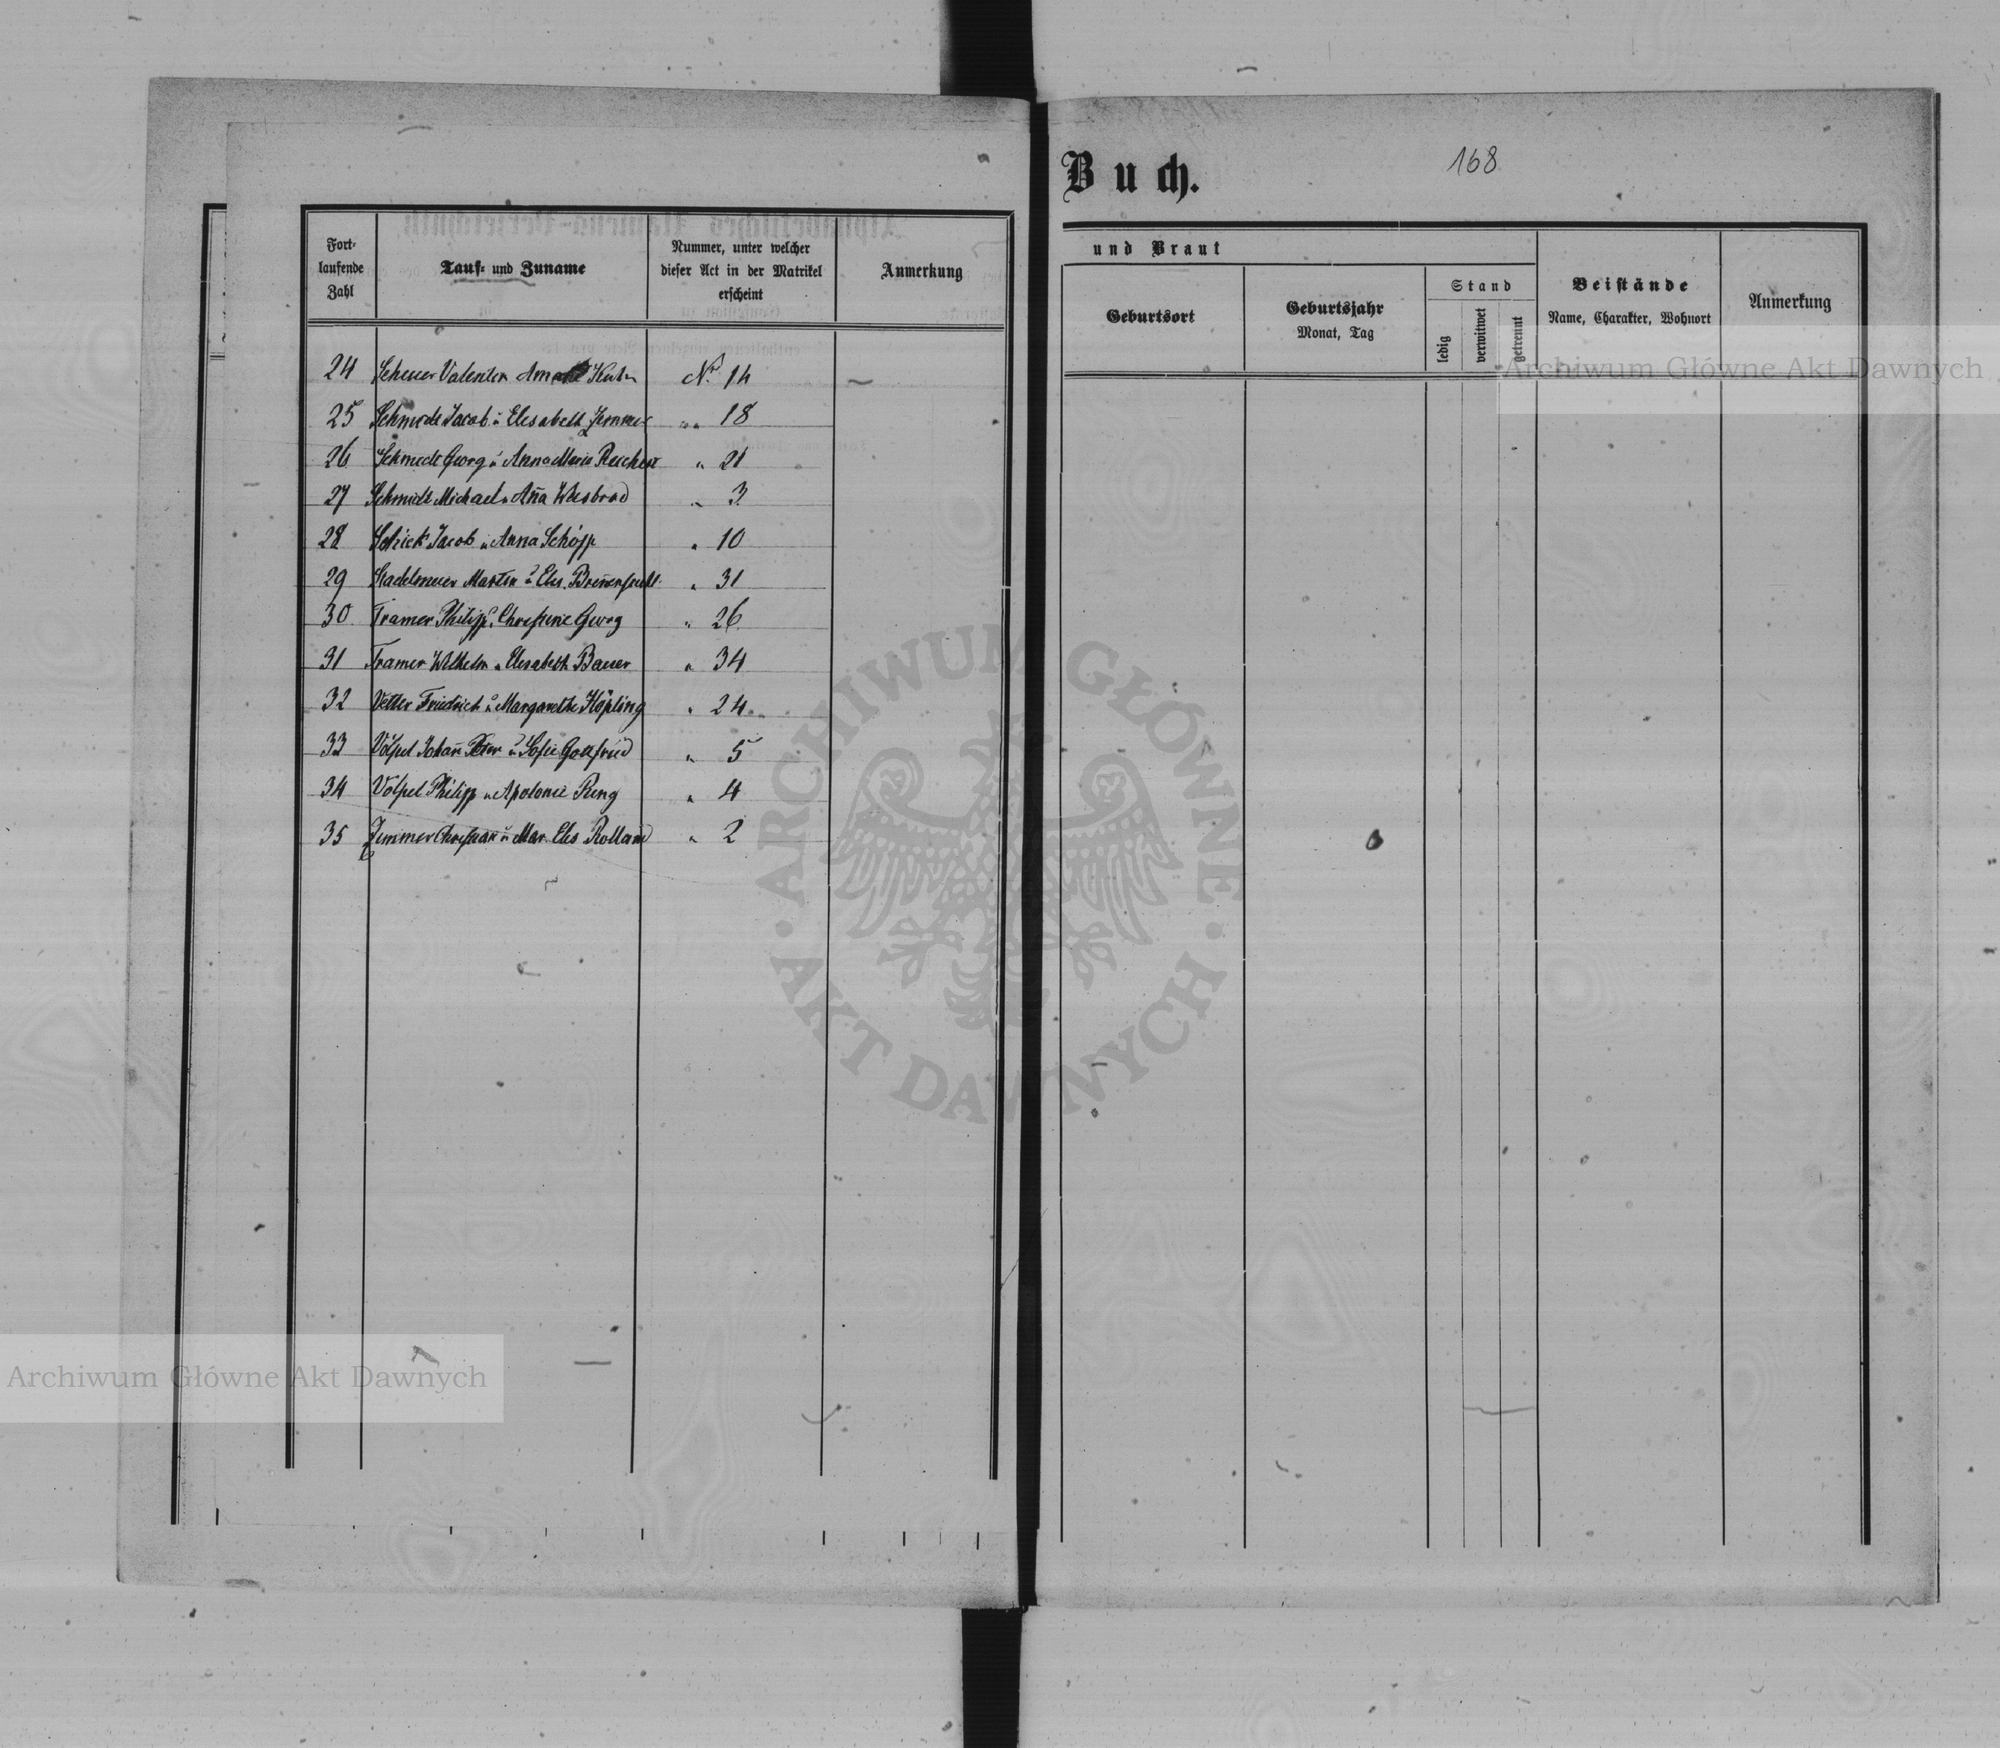 Fort-
laufende
Zahl
Tauf- und Zuname
Nummer, unter welcher
dieser Act in der Matrikel
erscheint
Anmerkung
24 Scheuer Valentin Kuhn No. 14
25 Schmidt Jacob u Elisabeth Zimmer " 18
26 Schmidt Georg u Anna Maria Reichert " 21
27 Schmidt Michael u Ana Weisbrod " 3
28 Schick Jacob u Anna Schöpp " 10
29 Stadelmeier Martin u Elis. " 31
30 Tramer Philipp Christine Georg " 26
31 Tramer Wilhelm u Elisabeth Bauer " 34
32 Vetter Friedrich u Margarethe Köpling " 24
33 Völpel Johan Peter u Sofie Gottfried " 5
34 Völpel Philipp u Apolonie Ring " 4
35 Zimmer Christian u Mar. Elis Rolland " 2
Buch.
168
und Braut
Geburtsort
Geburtsjahr
Monat, Tag
Stand
ledig
verwitwet
getrennt
Beistände
Name, Charakter, Wohnort
Anmerkung
Archiwum Główne Akt Dawnych
ARCHIWUM GŁÓWNE
AKT DAWNYCH
Archiwum Główne Akt Dawnych